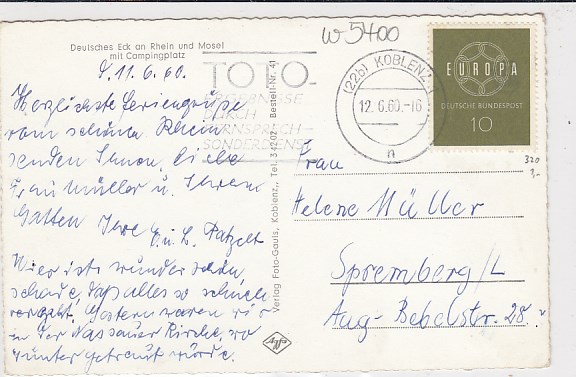 w 5400
Deutsches Eck an Rhein und Mosel
mit Campingplatz
d. 11.6.60.
Herzlichste Feriengrüße
vom schönen Rhein
senden Ihnen, liebe
Frau Müller u. Ihrem
Gatten Ihre E. u. L. Patzelt
Hier ist's wunderschön,
schade, daß alles so schnell
vergeht. Gestern waren wir
in der Nassauer Kirche, wo
Günter getraut wurde.
TOTO-
ERGEBNISSE
DURCH
FERNSPRECH-
SONDERDIENST
(22b) KOBLENZ
12.6.60.-16
n
EUROPA
DEUTSCHE BUNDESPOST
10
320
Verlag Foto-Gauls, Koblenz, Tel. 34202 · Bestell-Nr. 41
Agfa
Frau
Helene Müller
Spremberg/L
Aug-Bebelstr. 28.